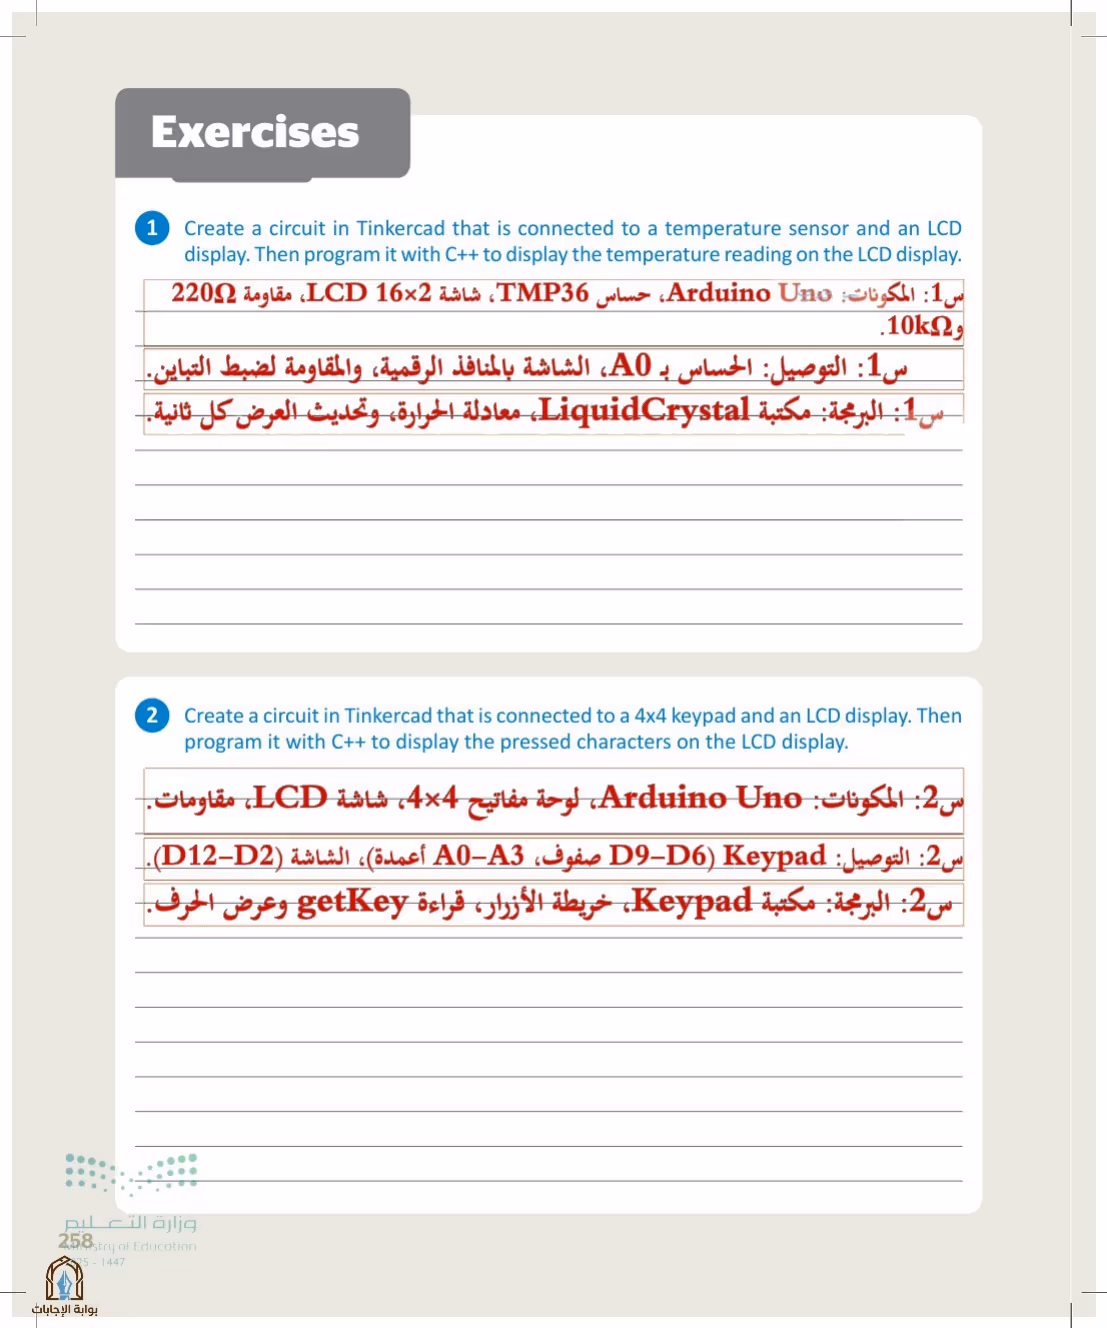 Exercises
1 Create a circuit in Tinkercad that is connected to a temperature sensor and an LCD
display. Then program it with C++ to display the temperature reading on the LCD display.
س1: المكونات: Arduino Uno، حساس TMP36، شاشة LCD 16×2، مقاومة 220Ω
و10kΩ.
س1: التوصيل: الحساس بـ A0، الشاشة بالمنافذ الرقمية، والمقاومة لضبط التباين.
س1: البرمجة: مكتبة LiquidCrystal، معادلة الحرارة، وتحديث العرض كل ثانية.
2 Create a circuit in Tinkercad that is connected to a 4x4 keypad and an LCD display. Then
program it with C++ to display the pressed characters on the LCD display.
س2: المكونات: Arduino Uno، لوحة مفاتيح 4×4، شاشة LCD، مقاومات.
س2: التوصيل: Keypad (D9–D6 صفوف، A0–A3 أعمدة)، الشاشة (D12–D2).
س2: البرمجة: مكتبة Keypad، خريطة الأزرار، قراءة getKey وعرض الحرف.
وزارة التعليم
258
Ministry of Education
2025 - 1447
بوابة الإجابات